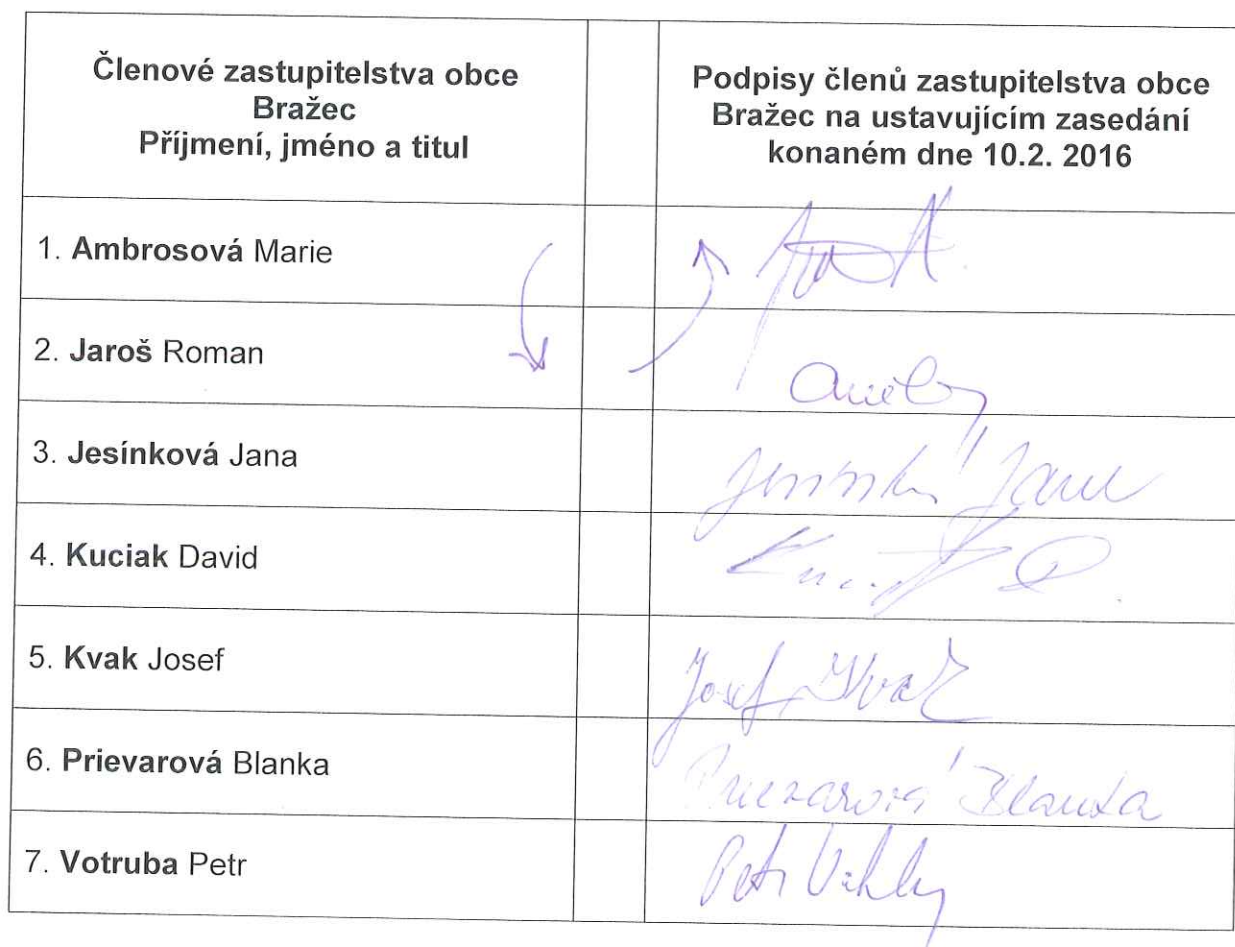 Členové zastupitelstva obce
Bražec
Příjmení, jméno a titul
Podpisy členů zastupitelstva obce
Bražec na ustavujícím zasedání
konaném dne 10.2. 2016
1. Ambrosová Marie
2. Jaroš Roman
3. Jesínková Jana
Jana
4. Kuciak David
5. Kvak Josef
Josef Kvak
6. Prievarová Blanka
Prievarová Blanka
7. Votruba Petr
Petr